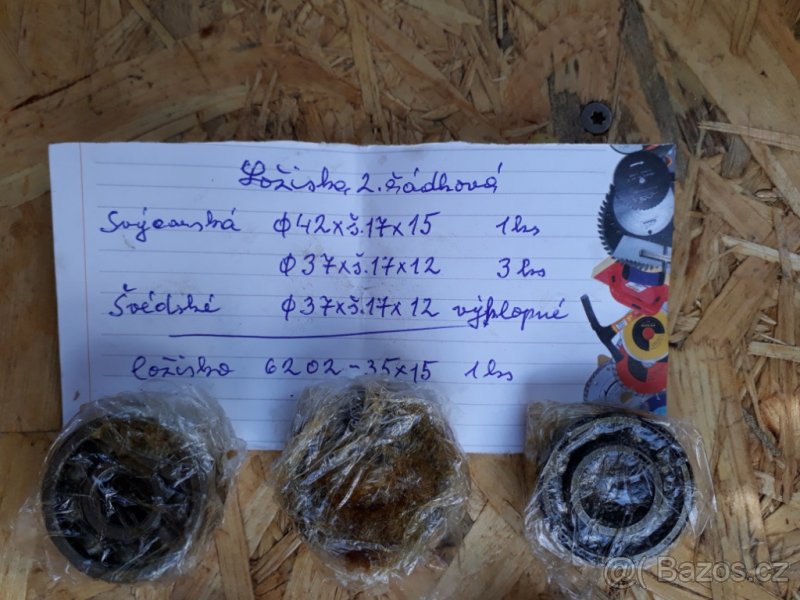 Ložiska 2.řádková
švýcarská ∅42xš.17x15 1ks
∅37xš.17x12 3ks
švédské ∅37xš.17x12 výklopné
ložisko 6202-35x15 1ks
@( Bazos.cz